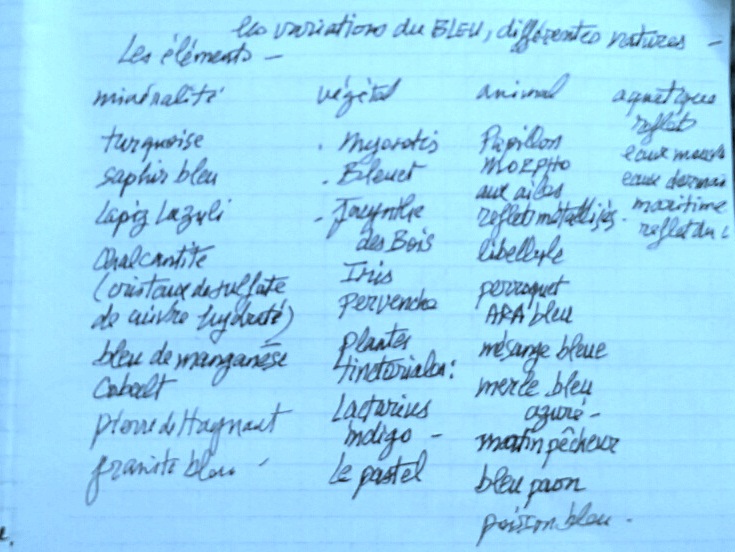 les variations du BLEU, différentes natures -
Les éléments -
minéralité
turquoise
saphir bleu
Lapiz Lazuli
Chalcantite
(cristaux de sulfate
de cuivre hydraté)
bleu de manganèse
Cobalt
pierre de
granite bleu -
végétal
. Myosotis
. Bleuet
- Jacynthe
des Bois
Iris
pervenche
plantes
tinctoriales:
Lactarius
indigo -
Le pastel
animal
Papillon
MORPHO
aux ailes
reflet métallisés.
libellule
perroquet
ARA bleu
mésange bleue
merle bleu
azuré -
martin pêcheur
bleu paon
poisson bleu.
aquatiques
reflet
eaux
eaux
maritime
reflet du